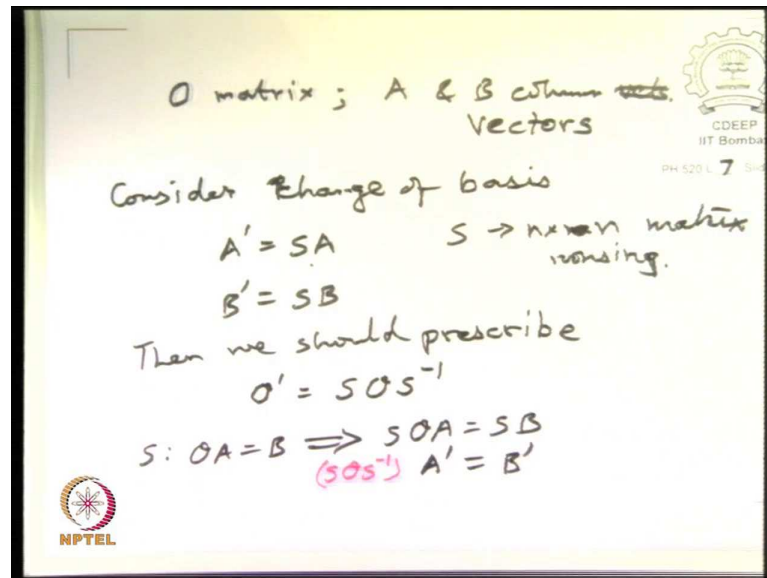 O matrix ; A & B column
vectors
CDEEP
IIT Bomba
PH 520 L 7 Sli
Consider change of basis
A' = SA S → n×n matrix
nonsing.
B' = SB
Then we should prescribe
O' = SOS⁻¹
S: OA = B ⟹ SOA = SB
(SOS⁻¹) A' = B'
NPTEL